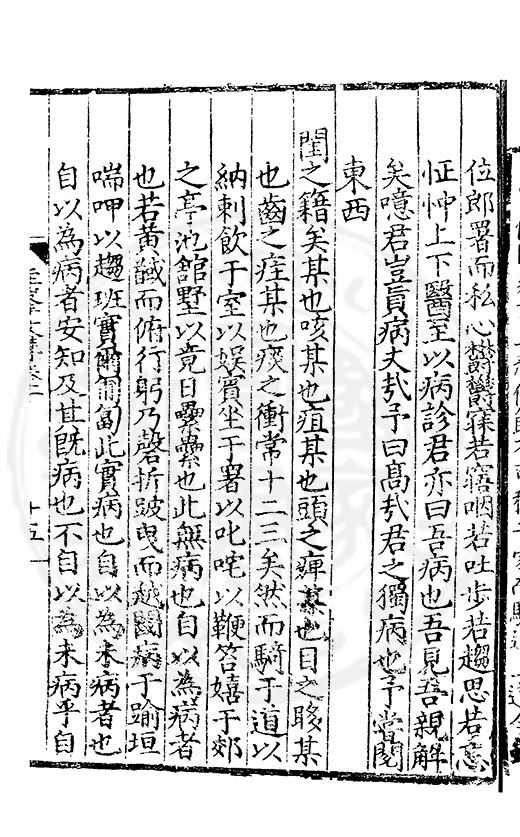 位郎署而私心欝欝寐若寤咽若吐步若趨思若忘
怔忡上下醫至以病診君亦曰吾病也吾見吾親解
矣噫君豈真病夫㢤予曰髙㢤君之獨病也予嘗閱
東西
閨之籍矣某也咳某也疽某也頭之痺某也目之眵某
也齒之疰某也痰之衝常十二三矣然而騎于道以
納刺飲于室以娛賓坐于署以叱咤以鞭笞嬉于郊
之亭池舘墅以竟日纍纍也此無病也自以為病者
也若黃馘而俯行躬乃磬折跛曳而越閾病于踰垣
喘呷以趨班實爾匍匐此實病也自以為未病者也
自以為病者安知及其既病也不自以為未病乎自
文集卷二
十五